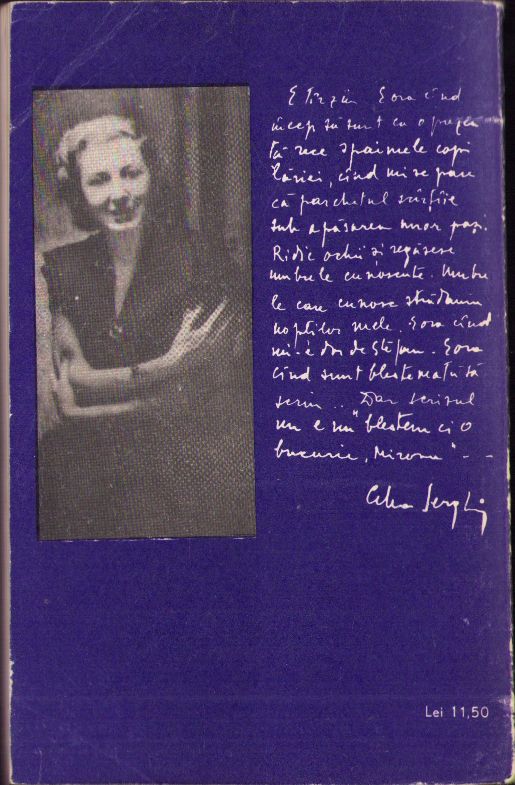 E tîrziu. E ora cînd
încep să sunt ca o
tă rece spaimele copi
lăriei, cînd mi se pare
că parchetul scîrțîie
sub apăsarea unor pași.
Ridic ochii și regăsesc
umbrele cunoscute. Umbre
le care cunosc strădania
nopților mele. E ora cînd
mi-e dor de Ștefan. E ora
cînd sunt blestemată să
scriu... Dar scrisul
nu e un "blestem ci o
bucurie, Mirona" - -
Cella Serghi
Lei 11,50